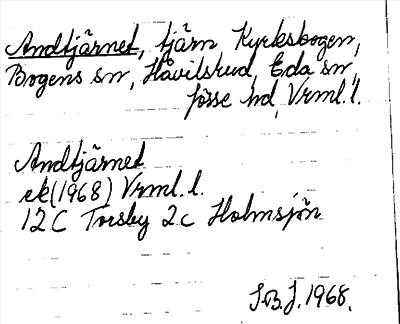 Andtjärnet, tjärn Kyrksbogen,
Bogens sn, Håvilsrud, Eda sn,
Jösse hd, Vrml. l.
Andtjärnet
ek (1968) Vrml. l.
12 C Torsby 2 c Holmsjön
S.B.J. 1968.